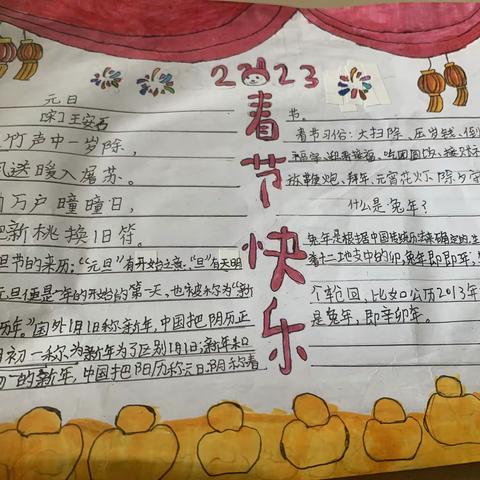 2023
春节快乐
元日
[宋]王安石
竹声中一岁除，
风送暖入屠苏。
万户曈曈日，
把新桃换旧符。
旦节的来历："元旦"有开始之意，"旦"有天明
元旦便是一年的开始的第一天，也被称为"新
历年。"国外1月1日称新年，中国把阴历正
月初一称为新年为了区别1月1日新年和
一的新年，中国把阳历称元旦，阴称春
节。
春节习俗：大扫除、压岁钱、倒
福字、迎春接福、吃团圆饭、接
鞭炮、拜年、元宵花灯、除夕守
什么是兔年？
兔年是根据中国传统历法来确定的，生
着十二地支中的卯，兔年即卯年，
个轮回，比如公历2013年
是兔年，即辛卯年。